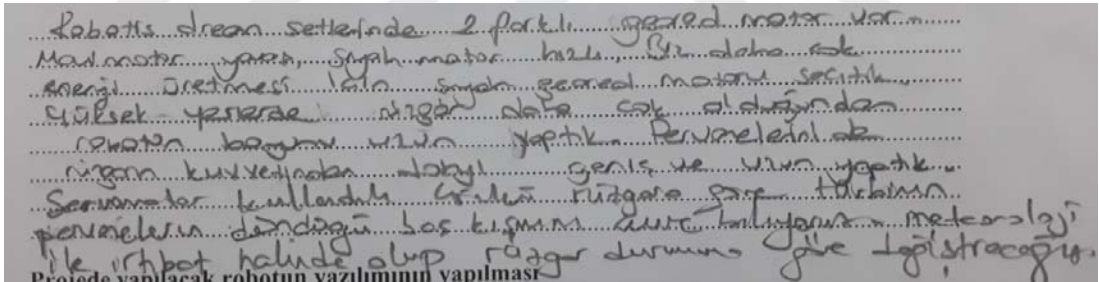 Robotis dream setlerinde 2 farklı geared motor var.
Mavi motor yavaş, siyah motor hızlı, Biz daha çok
enerji üretmesi için siyah geared motoru seçtik.
Yüksek yerlerde rüzgar daha çok olduğundan
robotun boyunu uzun yaptık. Pervanelerini de
rüzgarın kuvvetinden dolayı geniş ve uzun yaptık.
Servomotor kullandık Çünkü rüzgara göre türbinin
pervanelerin döndüğü baş kısmını meteoroloji
ile irtibat halinde olup rüzgar durumuna göre değiştireceğiz.
Projede yapılacak robotun yazılımının yapılması